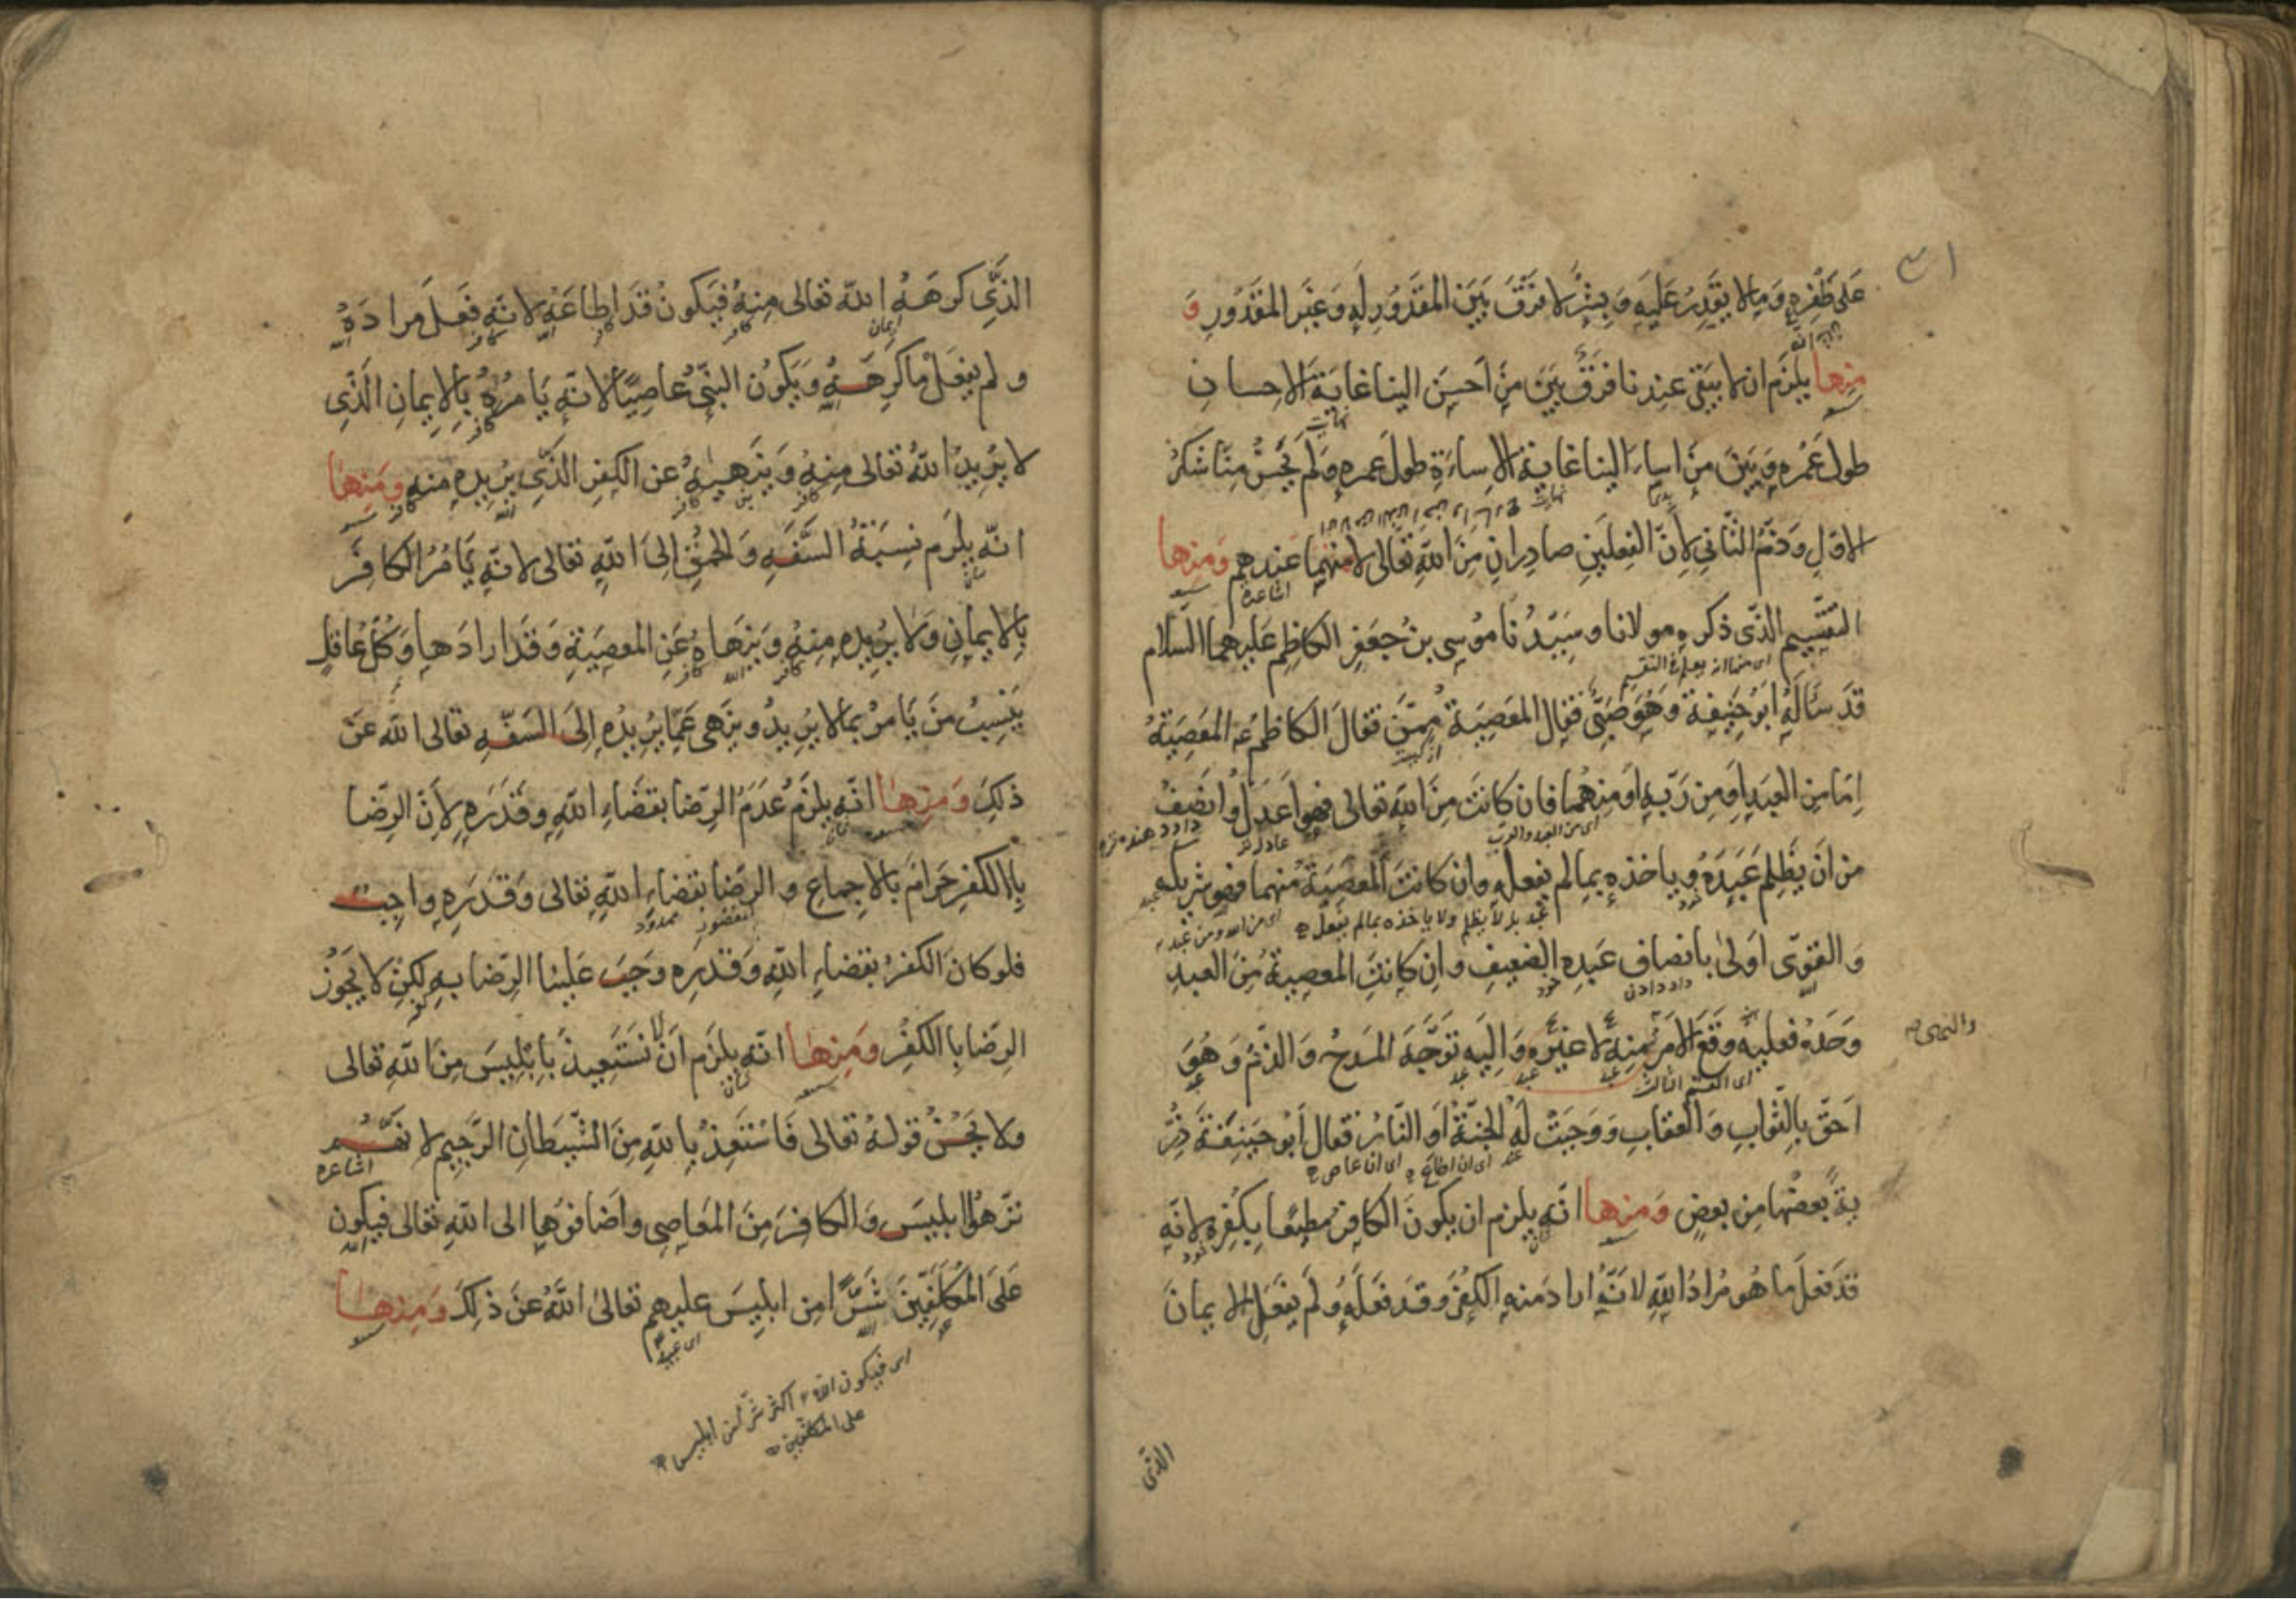 على ظفره وما لا يقدر عليه وبشر لا فرق بين المقدور له وغير المقدور و
منها يلزم ان لا يبقى عندنا فرق بين من احسن الينا غاية الاحسان
طول عمره وبين من اساء الينا غاية الاساءة طول عمره ولم يحسن منا شكر
الاول وذم الثاني لان الفعلين صادران من الله تعالى لا منهما عندهم ومنها
اشاعره
التقسيم الذي ذكره مولانا وسيدنا موسى بن جعفر الكاظم عليهما السلام
قد ساله ابو حنيفة وهو صبي فقال المعصية ممن فقال الكاظم ع المعصية
اما من العبد او من ربه او منهما فان كانت من الله تعالى فهو اعدل وانصف
اى من العبد والرب
عادل تر
من ان يظلم عبده وياخذه بما لم يفعله وان كانت المعصية منهما فهو شريكه
والقوى اولى بانصاف عبده الضعيف وان كانت المعصية من العبد
داد دادن
خود
وحده فعليه وقع الامر منه لا غيره واليه توجه المدح والذم وهو
والنهى
اى القسم الثالث
احق بالثواب والعقاب ووجبت له الجنة او النار فقال ابو حنيفة ذر
ية بعضها من بعض ومنها انه يلزم ان يكون الكافر مطيعا بكفره لانه
قد فعل ما هو مراد الله لانه اراد منه الكفر وقد فعله ولم يفعل الايمان
الذى
الذي كرهه الله تعالى منه فيكون قد اطاعه لانه فعل مراده
ايمان
كافر
ولم يفعل ما كرهه ويكون النبي عاصيا لانه يامره بالايمان الذي
كافر
لا يريد الله تعالى منه وينهيه عن الكفر الذي يريده منه ومنها
كافر
الله
انه يلزم نسبة السفه والحمق الى الله تعالى لانه يامر الكافر
بالايمان ولا يريده منه وينهاه عن المعصية وقد ارادها وكل عاقل
كافر
الله
كافر
ينسب من يامر بما لا يريد وينهى عما يريده الى السفه تعالى الله عن
ذلك ومنها انه يلزم عدم الرضا بقضاء الله وقدره لان الرضا
باالكفر حرام بالاجماع والرضا بقضاء الله تعالى وقدره واجب
فلو كان الكفر بقضاء الله وقدره وجب علينا الرضا به لكن لا يجوز
الرضا باالكفر ومنها انه يلزم ان نستعيذ بابليس من الله تعالى
ولا يحسن قوله تعالى فاستعذ بالله من الشيطان الرجيم لانهم
اشاعره
نزهوا ابليس والكافر من المعاصي واضافوها الى الله تعالى فيكون
الله
على المكلفين شرا من ابليس عليهم تعالى الله عن ذلك ومنها
اى فيكون الله اكثر شرا من ابليس
على المكلفين